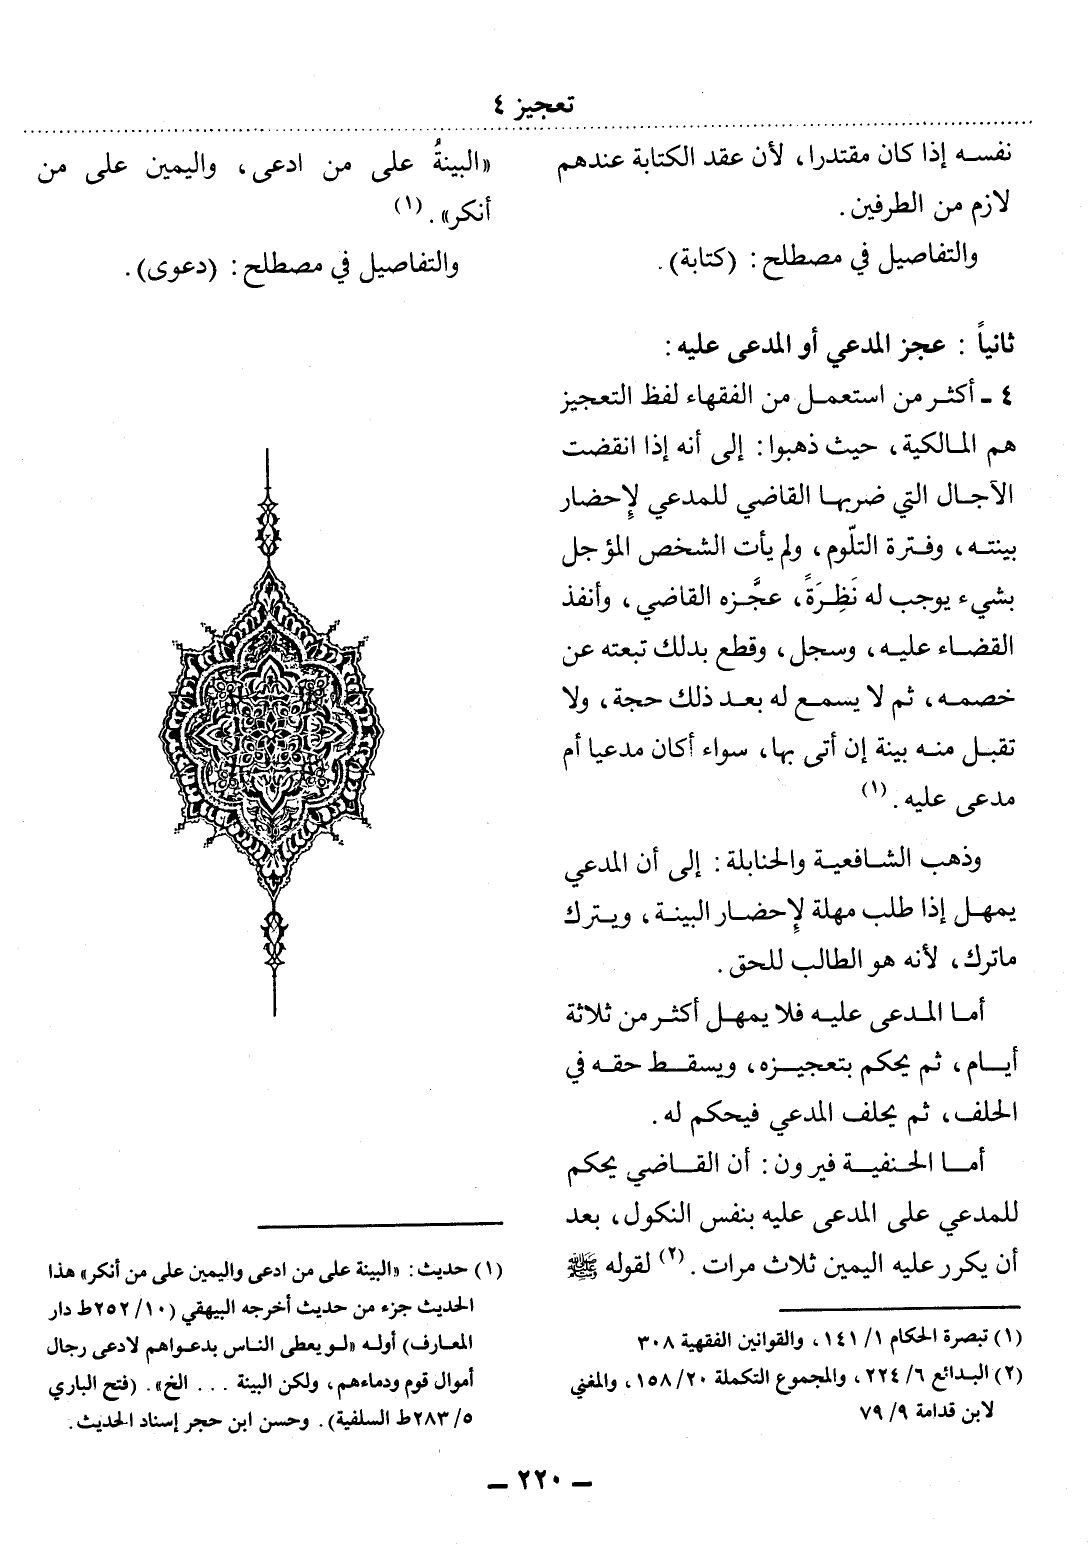 تعجيز ٤
نفسه إذا كان مقتدرا، لأن عقد الكتابة عندهم
لازم من الطرفين.
والتفاصيل في مصطلح: (كتابة).
ثانياً : عجز المدعي أو المدعى عليه:
٤ ـ أكثر من استعمل من الفقهاء لفظ التعجيز
هم المالكية، حيث ذهبوا: إلى أنه إذا انقضت
الآجال التي ضربها القاضي للمدعي لإحضار
بينته، وفترة التلّوم، ولم يأت الشخص المؤجل
بشيء يوجب له نَظِرَةً، عجَّزه القاضي، وأنفذ
القضاء عليه، وسجل، وقطع بذلك تبعته عن
خصمه، ثم لا يسمع له بعد ذلك حجة، ولا
تقبل منه بينة إن أتى بها، سواء أكان مدعيا أم
مدعى عليه. (١)
وذهب الشافعية والحنابلة: إلى أن المدعي
يمهل إذا طلب مهلة لإحضار البينة، ويترك
ماترك، لأنه هو الطالب للحق.
أما المدعى عليه فلا يمهل أكثر من ثلاثة
أيام، ثم يحكم بتعجيزه، ويسقط حقه في
الحلف، ثم يحلف المدعي فيحكم له.
أما الحنفية فيرون: أن القاضي يحكم
للمدعي على المدعى عليه بنفس النكول، بعد
أن يكرر عليه اليمين ثلاث مرات. (٢) لقوله ﷺ
(١) تبصرة الحكام ١/ ١٤١، والقوانين الفقهية ٣٠٨
(٢) البدائع ٦/ ٢٢٤، والمجموع التكملة ٢٠/ ١٥٨، والمغني
لابن قدامة ٩/ ٧٩
«البينةُ على من ادعى، واليمين على من
أنكر». (١)
والتفاصيل في مصطلح: (دعوى).
(١) حديث: «البينة على من ادعى واليمين على من أنكر» هذا
الحديث جزء من حديث أخرجه البيهقي (١٠/ ٢٥٢ط دار
المعارف) أوله «لو يعطى الناس بدعواهم لادعى رجال
أموال قوم ودماءهم، ولكن البينة ... الخ». (فتح الباري
٥/ ٢٨٣ط السلفية). وحسن ابن حجر إسناد الحديث.
ـ ٢٢٠ ـ